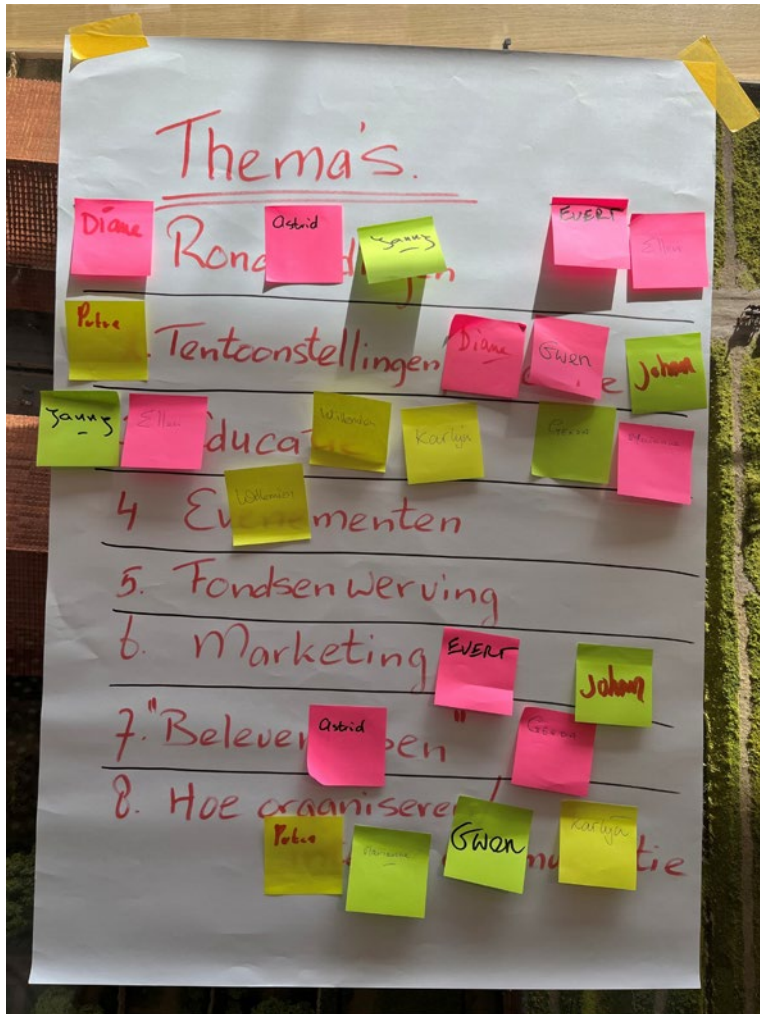 Thema's.
Diane Astrid Janny EVERT Ellen
Petra
. Tentoonstellingen Diane Gwen Johan
Janny Ellen Karlijn Gerda
Willemien
4 Evenementen
5. Fondsenwerving
6. Marketing EVERT Johan
7. "Beleven Astrid " Gerda
8. Hoe organiseren /
Petra Marianne Gwen Karlijn